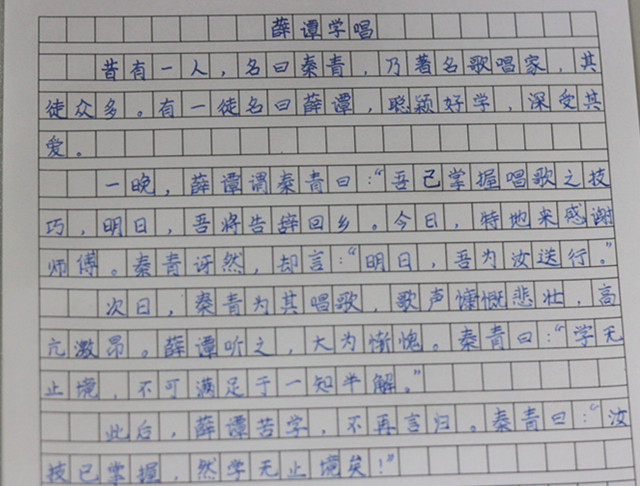 薛谭学唱
昔有一人，名曰秦青，乃著名歌唱家，其
徒众多。有一徒名曰薛谭，聪颖好学，深受其
爱。
一晚，薛谭谓秦青曰：“吾已掌握唱歌之技
巧，明日，吾将告辞回乡。今日，特地来感谢
师傅。秦青讶然，却言：“明日，吾为汝送行。”
次日，秦青为其唱歌，歌声慷慨悲壮，高
亢激昂。薛谭听之，大为惭愧。秦青曰：“学无
止境，不可满足于一知半解。”
此后，薛谭苦学，不再言归。秦青曰：“汝
技已掌握，然学无止境矣！”